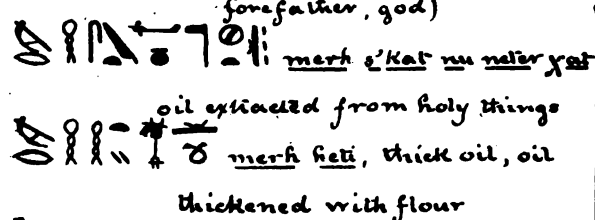 forefather, god)
merh s'kat nu neter χat
oil extracted from holy things
merh heti, thick oil, oil
thickened with flour